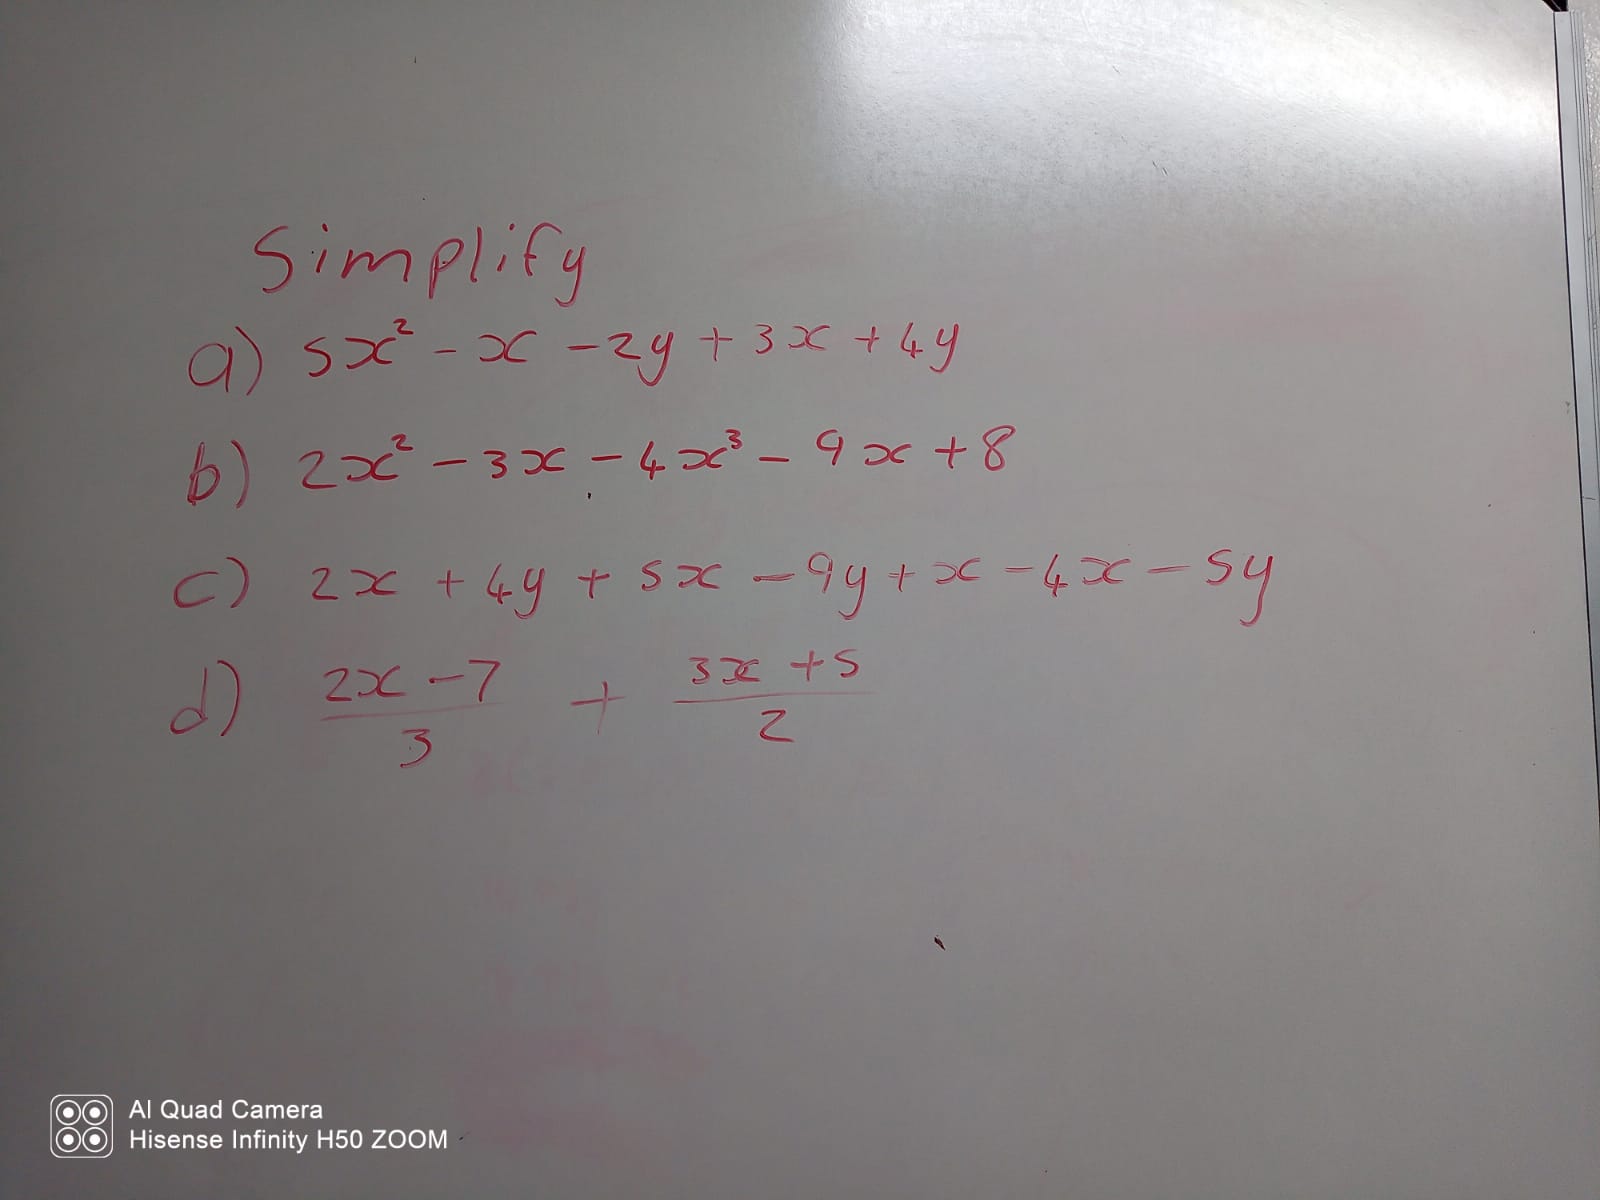 Simplify
a) 5x² - x - 2y + 3x + 4y
b) 2x² - 3x - 4x³ - 9x + 8
c) 2x + 4y + 5x - 9y + x - 4x - 5y
d) (2x - 7)/3 + (3x + 5)/2
AI Quad Camera
Hisense Infinity H50 ZOOM